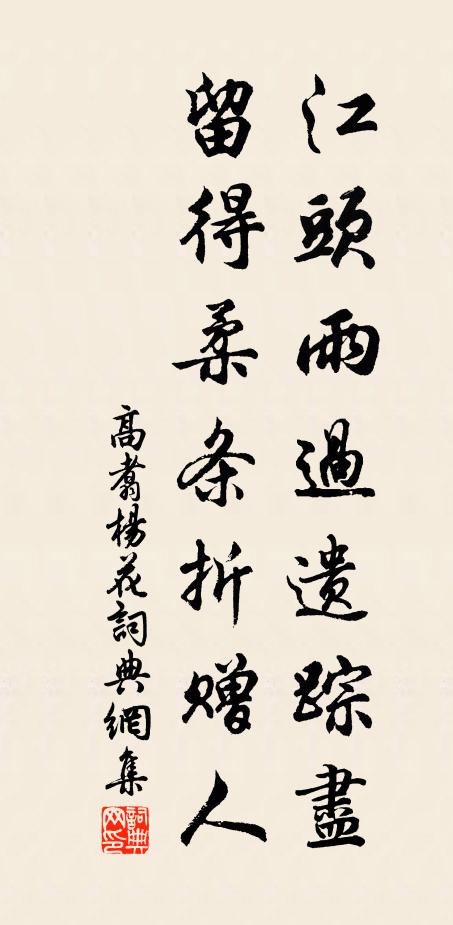 江頭雨過遺踪盡
留得柔条折贈人
高翥楊花詞典網集
詞典網印